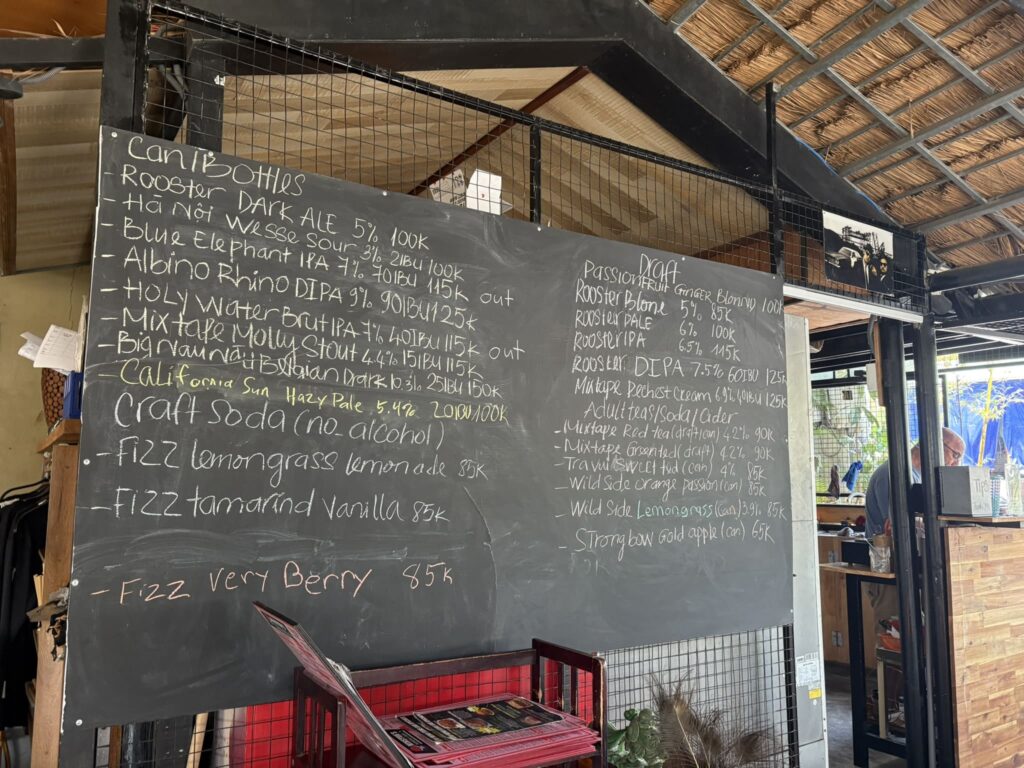 Can/Bottles
- Rooster DARK ALE 5% 100K
- Hà Nội Wesse Sour 3% 21BU 100K
- Blue Elephant IPA 7% 70IBU 115K out
- Albino Rhino DIPA 9% 90IBU 125K
- HOLY Water Brut IPA 7% 40IBU 115K out
- Mixtape Molly Stout 4.4% 15IBU 115K
- Big Dark 10.3% 25IBU 150K
- California Sun Hazy Pale 5.4% 20IBU 100K
Craft Soda (no alcohol)
- Fizz lemongrass lemonade 85K
- Fizz tamarind Vanilla 85K
- Fizz Very Berry 85K
Draft
Passionfruit Ginger 100K
Rooster Blone 5% 85K
Rooster PALE 6% 100K
Rooster IPA 6.5% 115K
Rooster DIPA 7.5% 60IBU 125K
Mixtape Cream 125K
Adult teas/Soda/Cider
- Mixtape Red tea (draft/can) 4.2% 90K
- Mixtape (draft) 4.2% 90K
- (can) 4% 85K
- Wild Side orange passion (can) 85K
- Wild Side Lemongrass (can) 3.9% 85K
- Strongbow Gold apple (can) 65K
Tips